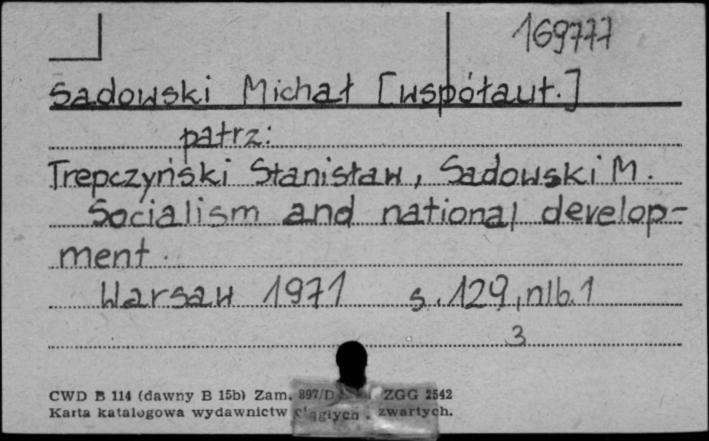 169777
Sadowski Michał [współaut.]
patrz:
Trepczyński Stanisław, Sadowski M.
Socialism and national develop-
ment.
Warsaw 1971 s. 129, nlb. 1
3
CWD B 114 (dawny B 15b) Zam. 897/D ZGG 2542
Karta katalogowa wydawnictw ciągłych . zwartych.